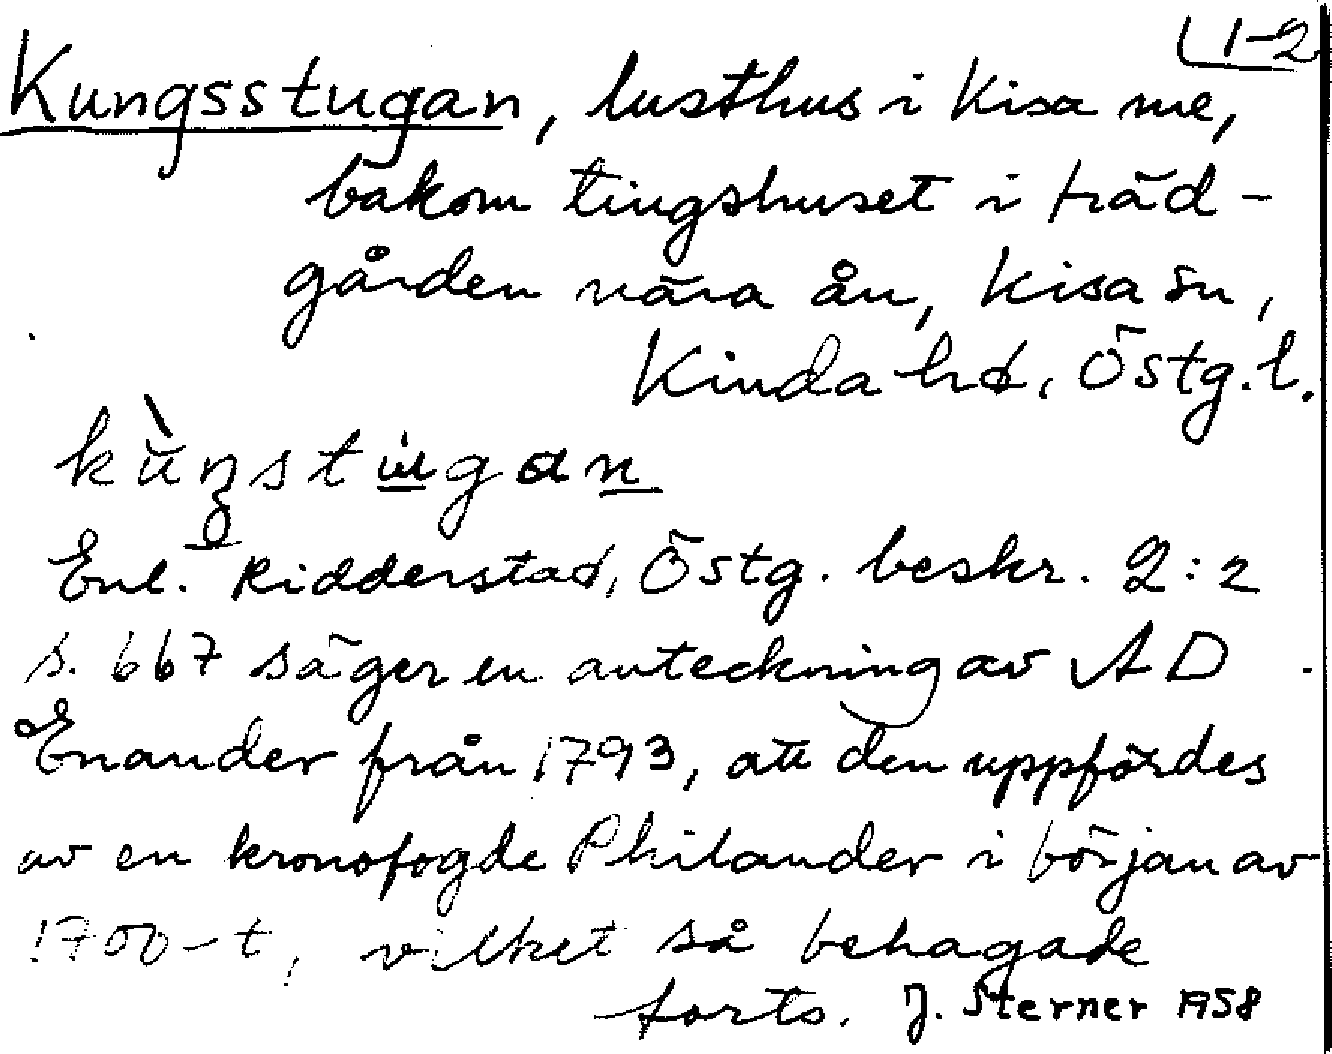 1-2
Kungsstugan, lusthus i Kisa sne,
bakom tingshuset i träd-
gården nära ån, Kisa sn,
Kinda hd, Östg.l.
Enl. Ridderstad, Östg. beskr. 2:2
s. 667 säger en anteckning av AD
Enander från 1793, att den uppfördes
av en kronofogde Philander i början av
1700-t, vilket så behagade
forts. J. Sterner 1958